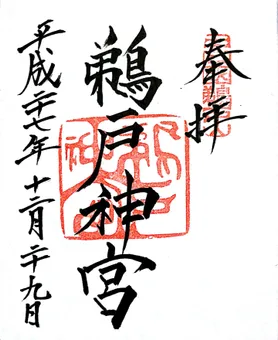 奉拝
鵜戸神宮
平成二十七年十二月二十九日